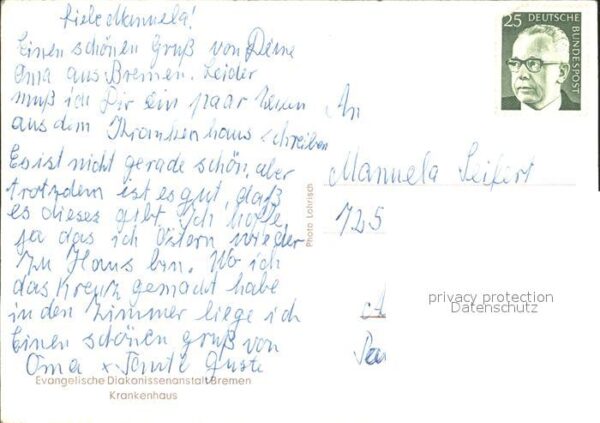 Liebe Manuela!
Einen schönen Gruß von Deine
Oma aus Bremen. Leider
muß ich Dir ein paar
aus dem Krankenhaus schreiben
Es ist nicht gerade schön, aber
trotzdem ist es gut, daß
es dieses gibt. Ich hoffe
ja das ich Ostern wieder
zu Haus bin. Wo ich
das Kreuz gemacht habe
in den Zimmer liege ich
Einen schönen gruß von
Oma x Tante Guste
Evangelische Diakonissenanstalt Bremen
Krankenhaus
Photo Lohrisch
25 DEUTSCHE
BUNDESPOST
An
Manuela Seifert
725
privacy protection
Datenschutz